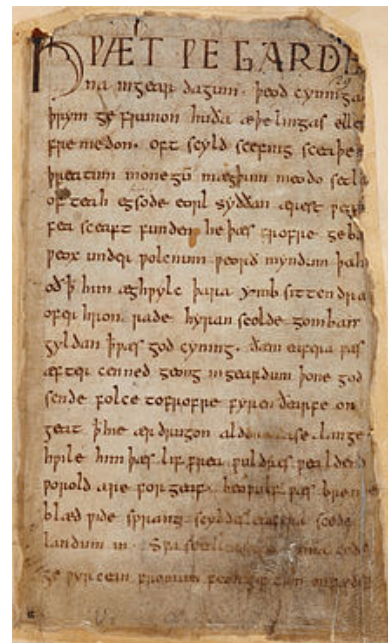 HǷÆT ǷE GARDE
na ingear dagum. þeod cyninga
þrym ge frunon huða æþelingas elle
fre medon. oft scyld scefing sceaþe
þreatum monegū mægþum meodo setla
of teah egsode eorl syððan ærest ƿear
fea sceaft funden he þæs frofre geba
ƿeox under ƿolcnum ƿeorð myndum þah
oð ꝥ him æghƿylc þara ymb sittendra
ofer hron rade hyran scolde gomban
gyldan ꝥ ƿæs god cyning. ðæm eafera ƿæs
æfter cenned geong ingeardum þone god
sende folce tofrofre fyren ðearfe on
geat ꝥ hie ær drugon aldor ase. lange
hƿile him þæs lif frea ƿuldres ƿealdend
ƿorold are for geaf. beoƿulf ƿæs breme
blæd ƿide sprang scyldes eafera scede
landum in. Sƿa uma gode
ge ƿyrcean fromum feoh giftum